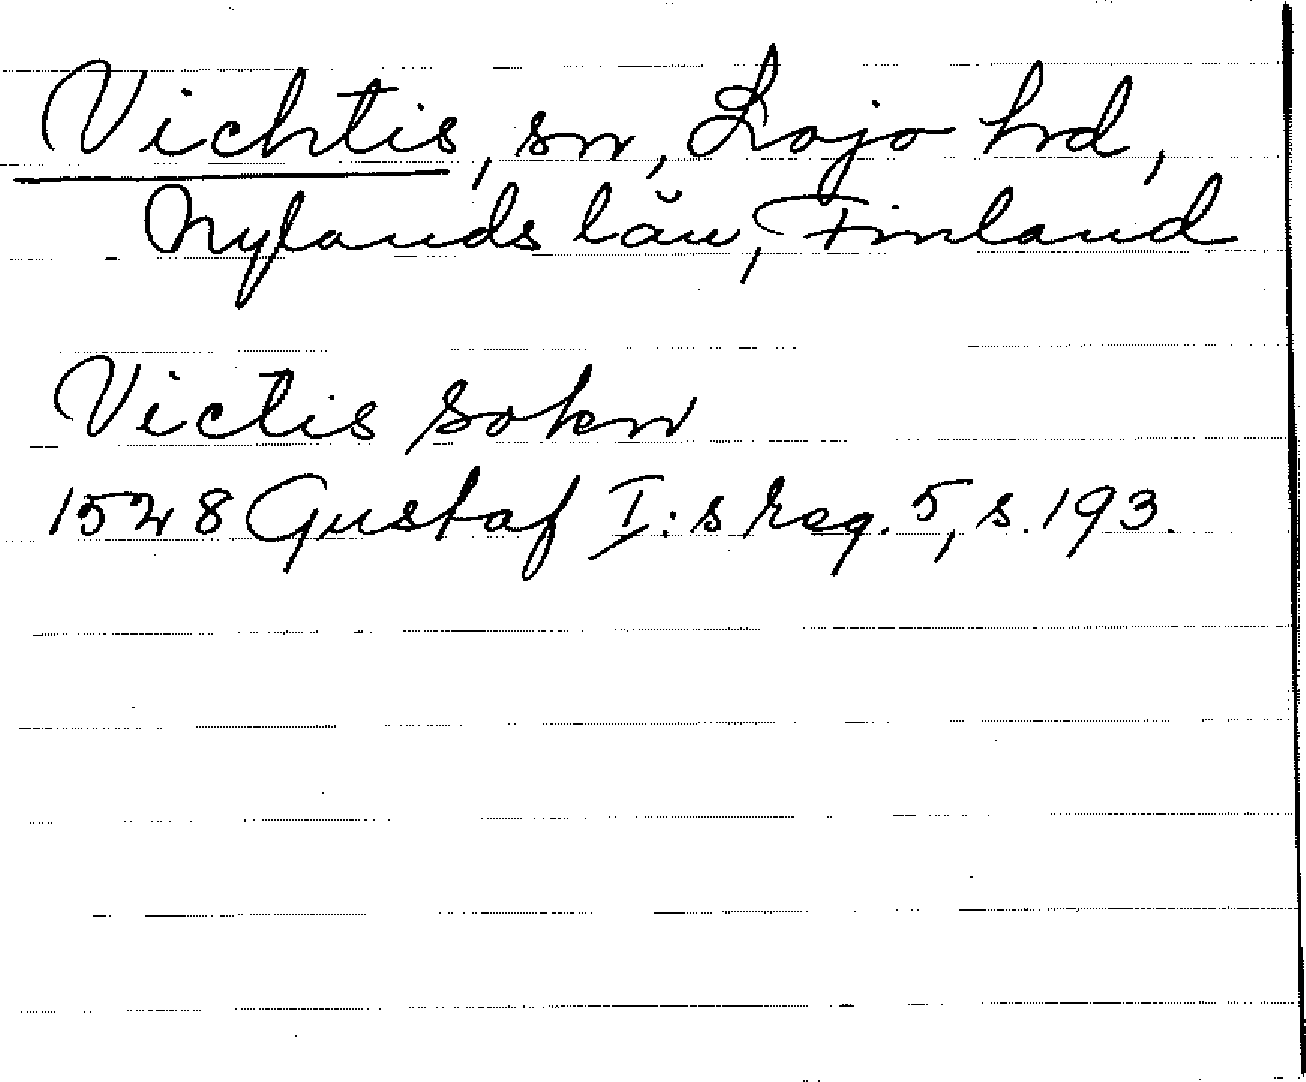 Vichtis, sn, Lojo hrd,
Nylands län, Finland
Victis sokn
1528 Gustaf I:s reg. 5, s. 193.